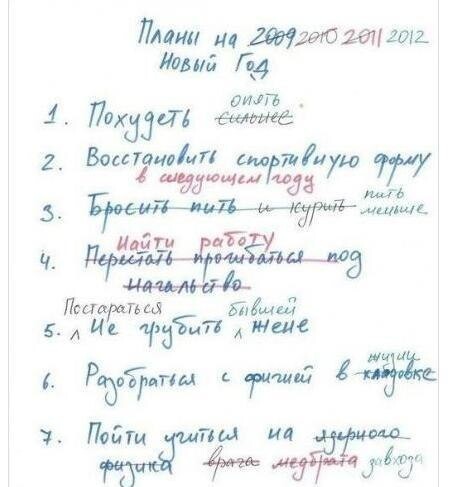 Планы на 2009 2010 2011 2012
Новый Год
опять
1. Похудеть сильнее
2. Восстановить спортивную форму
в следующем году
пить
3. Бросить пить и курить меньше
Найти работу
4. Перестать прогибаться под
начальство
Постараться бывшей
5. Не грубить жене
жизни
6. Разобраться с фигнёй в кладовке
7. Пойти учиться на ядерного
физика врача медбрата завхоза